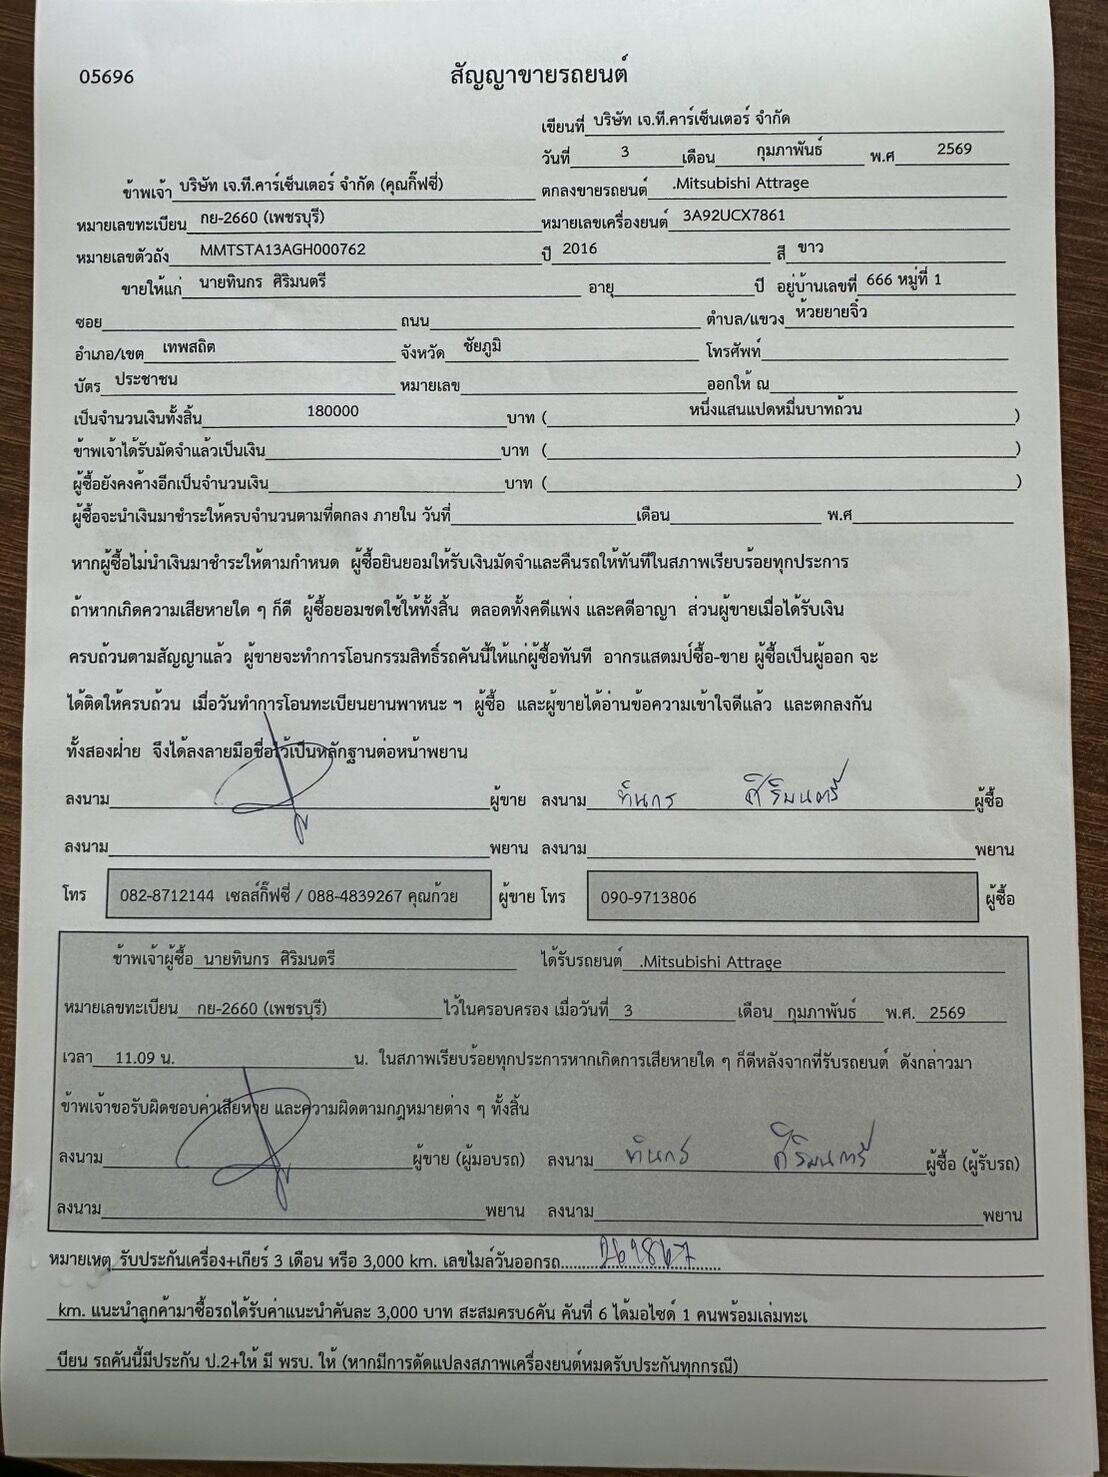 05696 สัญญาขายรถยนต์
เขียนที่ บริษัท เจ.ที.คาร์เซ็นเตอร์ จำกัด
วันที่ 3 เดือน กุมภาพันธ์ พ.ศ 2569
ข้าพเจ้า บริษัท เจ.ที.คาร์เซ็นเตอร์ จำกัด (คุณกิ๊ฟซี่) ตกลงขายรถยนต์ .Mitsubishi Attrage
หมายเลขทะเบียน กย-2660 (เพชรบุรี) หมายเลขเครื่องยนต์ 3A92UCX7861
หมายเลขตัวถัง MMTSTA13AGH000762 ปี 2016 สี ขาว
ขายให้แก่ นายทินกร ศิริมนตรี อายุ ปี อยู่บ้านเลขที่ 666 หมู่ที่ 1
ซอย ถนน ตำบล/แขวง ห้วยยายจิ๋ว
อำเภอ/เขต เทพสถิต จังหวัด ชัยภูมิ โทรศัพท์
บัตร ประชาชน หมายเลข ออกให้ ณ
เป็นจำนวนเงินทั้งสิ้น 180000 บาท ( หนึ่งแสนแปดหมื่นบาทถ้วน )
ข้าพเจ้าได้รับมัดจำแล้วเป็นเงิน บาท ( )
ผู้ซื้อยังคงค้างอีกเป็นจำนวนเงิน บาท ( )
ผู้ซื้อจะนำเงินมาชำระให้ครบจำนวนตามที่ตกลง ภายใน วันที่ เดือน พ.ศ
หากผู้ซื้อไม่นำเงินมาชำระให้ตามกำหนด ผู้ซื้อยินยอมให้รับเงินมัดจำและคืนรถให้ทันทีในสภาพเรียบร้อยทุกประการ
ถ้าหากเกิดความเสียหายใด ๆ ก็ดี ผู้ซื้อยอมชดใช้ให้ทั้งสิ้น ตลอดทั้งคดีแพ่ง และคดีอาญา ส่วนผู้ขายเมื่อได้รับเงิน
ครบถ้วนตามสัญญาแล้ว ผู้ขายจะทำการโอนกรรมสิทธิ์รถคันนี้ให้แก่ผู้ซื้อทันที อากรแสตมป์ซื้อ-ขาย ผู้ซื้อเป็นผู้ออก จะ
ได้ติดให้ครบถ้วน เมื่อวันทำการโอนทะเบียนยานพาหนะ ฯ ผู้ซื้อ และผู้ขายได้อ่านข้อความเข้าใจดีแล้ว และตกลงกัน
ทั้งสองฝ่าย จึงได้ลงลายมือชื่อไว้เป็นหลักฐานต่อหน้าพยาน
ลงนาม ผู้ขาย ลงนาม ทินกร ศิริมนตรี ผู้ซื้อ
ลงนาม พยาน ลงนาม พยาน
โทร 082-8712144 เซลส์กิ๊ฟซี่ / 088-4839267 คุณก้วย ผู้ขาย โทร 090-9713806 ผู้ซื้อ
ข้าพเจ้าผู้ซื้อ นายทินกร ศิริมนตรี ได้รับรถยนต์ .Mitsubishi Attrage
หมายเลขทะเบียน กย-2660 (เพชรบุรี) ไว้ในครอบครอง เมื่อวันที่ 3 เดือน กุมภาพันธ์ พ.ศ. 2569
เวลา 11.09 น. น. ในสภาพเรียบร้อยทุกประการหากเกิดการเสียหายใด ๆ ก็ดีหลังจากที่รับรถยนต์ ดังกล่าวมา
ข้าพเจ้าขอรับผิดชอบค่าเสียหาย และความผิดตามกฎหมายต่าง ๆ ทั้งสิ้น
ลงนาม ผู้ขาย (ผู้มอบรถ) ลงนาม ทินกร ศิริมนตรี ผู้ซื้อ (ผู้รับรถ)
ลงนาม พยาน ลงนาม พยาน
หมายเหตุ รับประกันเครื่อง+เกียร์ 3 เดือน หรือ 3,000 km. เลขไมล์วันออกรถ
km. แนะนำลูกค้ามาซื้อรถได้รับค่าแนะนำคันละ 3,000 บาท สะสมครบ6คัน คันที่ 6 ได้มอไซต์ 1 คนพร้อมเล่มทะเ
บียน รถคันนี้มีประกัน ป.2+ให้ มี พรบ. ให้ (หากมีการดัดแปลงสภาพเครื่องยนต์หมดรับประกันทุกกรณี)